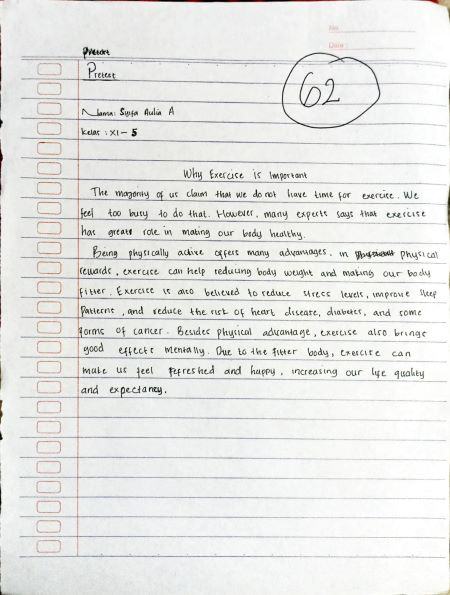 No.
Date:
Pretest
Pretest
62
Nama: Syifa Aulia A
Kelas : XI - 5
Why Exercise is Important
The majority of us claim that we do not have time for exercise. We
feel too busy to do that. However, many experts says that exercise
has greats role in making our body healthy.
Being physically active offers many advantages. in physical
rewards, exercise can help reducing body weight and making our body
fitter. Exercise is also believed to reduce stress levels, improve sleep
patterns, and reduce the risk of heart disease, diabetes, and some
forms of cancer. Besides physical advantage, exercise also brings
good effects mentally. Due to the fitter body, exercise can
make us feel refreshed and happy, increasing our life quality
and expectancy.